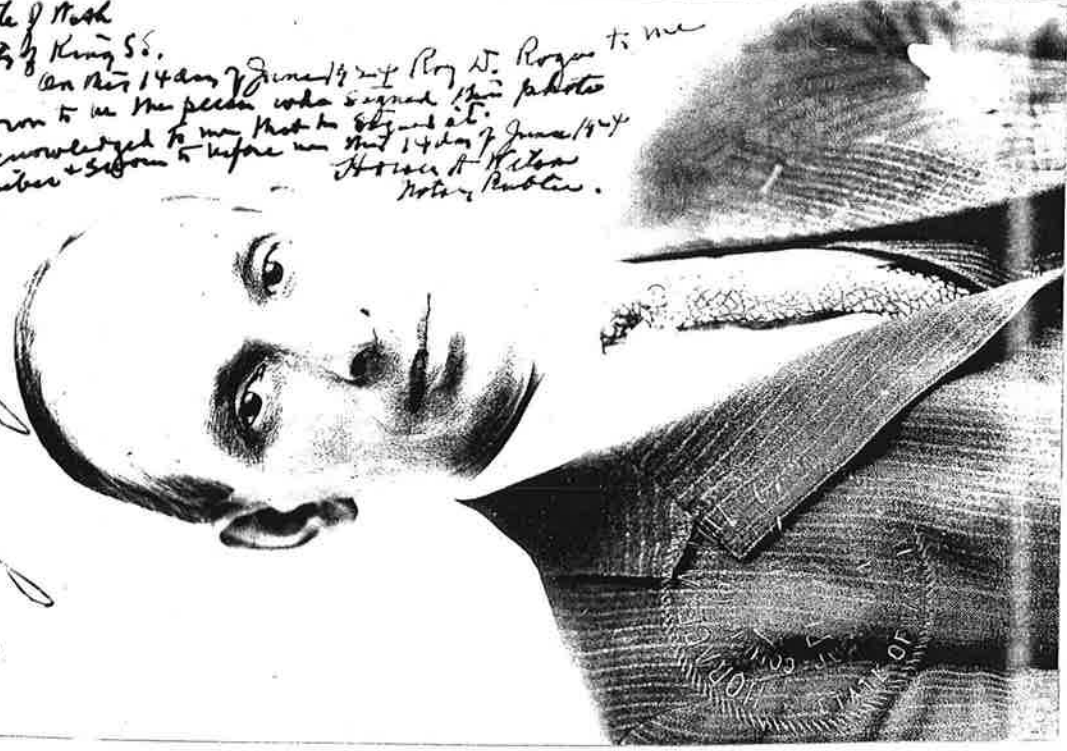 of Wash
of King SS.
On this 14 day of June 1924 Roy D. Rogers to me
to be the person who signed this photo
acknowledged to me that he signed it.
& sworn to before me this 14 day of June 1924
Horace A Wilson
Notary Public.
HORACE A
COMM
STATE OF